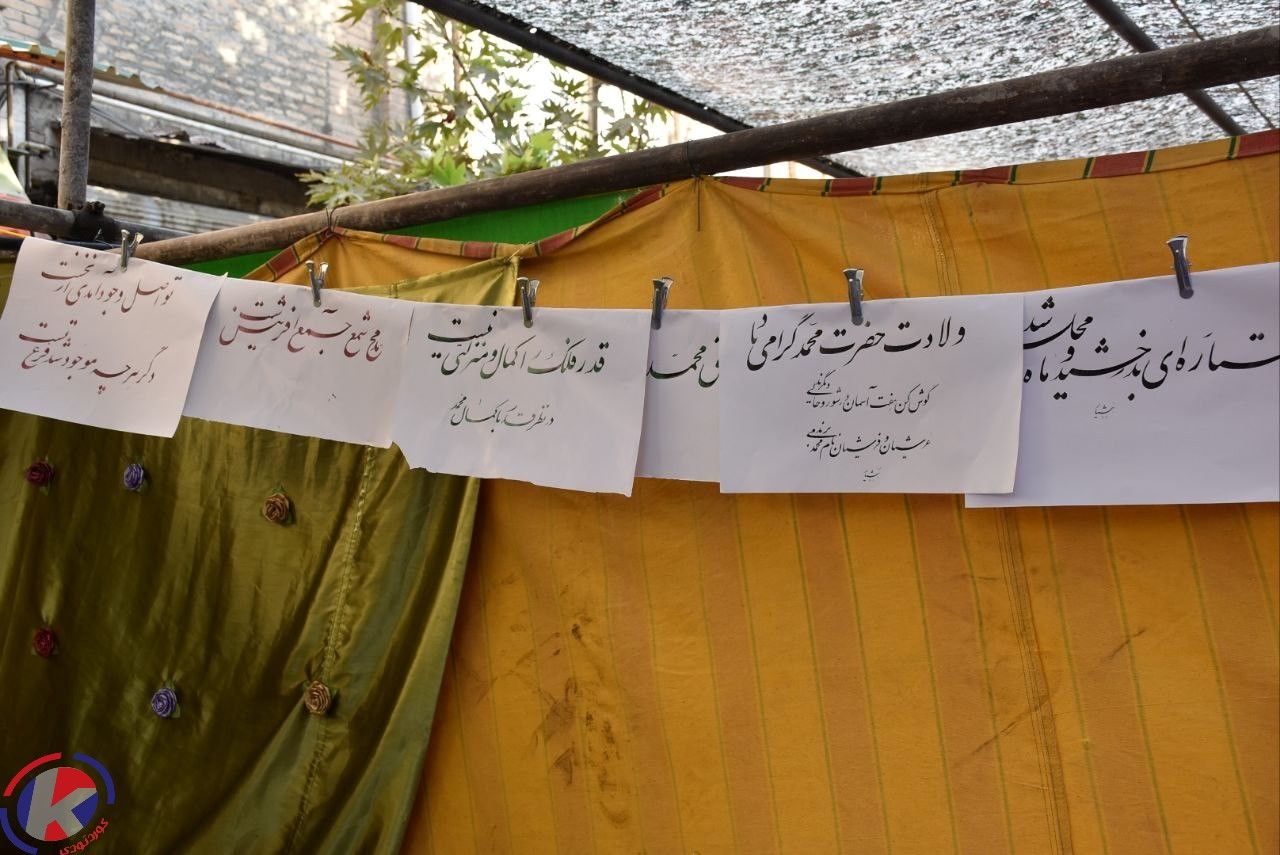 ستاره‌ای بدرخشید و ماه مجلس شد
ولادت حضرت محمد گرامی باد
گوش کن هفت آسمان در شور و حالی دیگرند
عرشیان و فرشیان نام محمد می برند
محمد
قدر فلک را کمال و منزلتی نیست
در نظر قدر با کمال محمد
شمع جمع آفرینش است
تو اصل وجود آمدی از نخست
دگر هر چه موجود شد فرع تست
K
کوردتودی